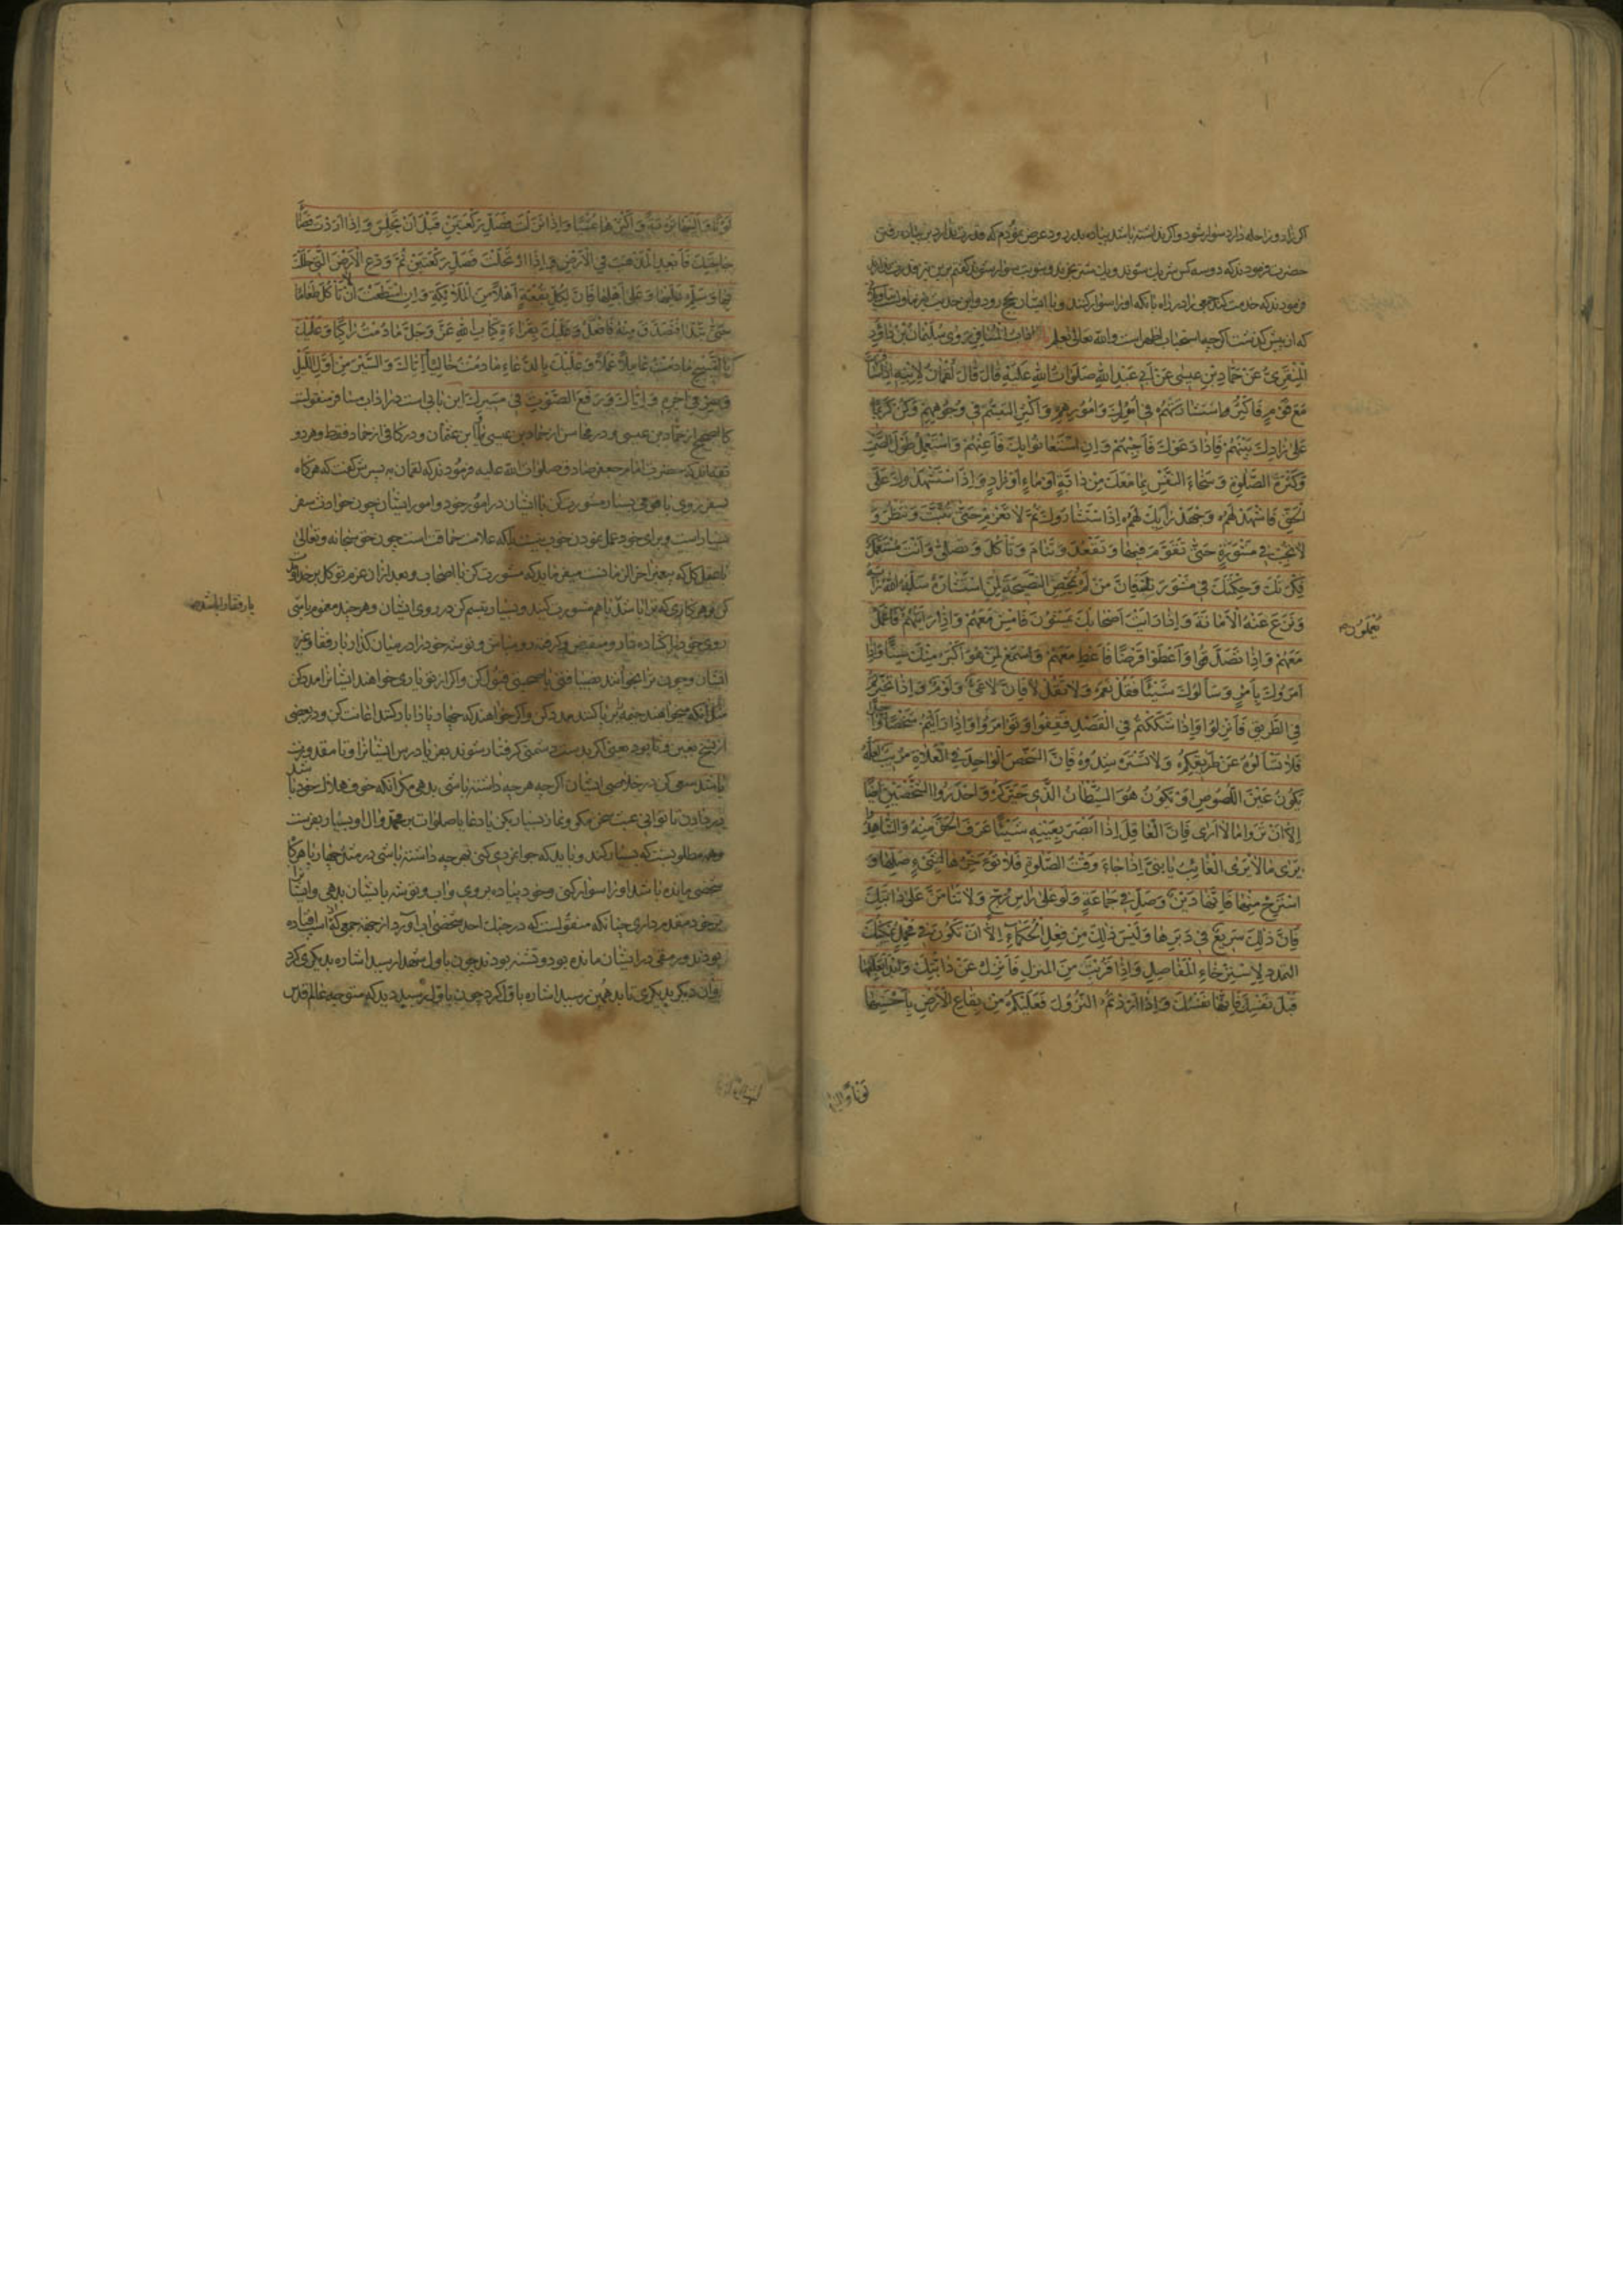 اکر زاد و راحله دارد سوار شود و اکر نداشته باشد پیاده بدر رود عرض نمودم که قدرت ندارد بر پیاده رفتن
حضرت فرمودند که دو سه کس شریك شوند و یك شتر بخرند و بنوبت سوار شوند کفتم برین نیز قدرت ندارد
فرمودند که خدمت کند جمعی را در راه تا آنکه او را سوار کنند و با ایشان بحج رود و این حدیث
که از پیش کذشت که استحباب اظهر است والله تعالی یعلم باب آداب المسافر روی سلیمان بن داود
المنقری عن حماد بن عیسی عن ابی عبد الله صلوات الله علیه قال قال لقمان لابنه اذا سافرت
مع قوم فاکثر استشارتهم فی امرك و امورهم و اکثر التبسم فی وجوههم و کن کریما
علی زادك بینهم فاذا دعوك فاجبهم و ان استعانوا بك فاعنهم و استعمل طول الصمت
و کثرة الصلوة و سخاء النفس بما معك من دابة او ماء او زاد و اذا استشهدوك علی
الحق فاشهد لهم و اجهد رأیك لهم اذا استشاروك ثم لا تعزم حتی تثبت و تنظر و
لا تجب فی مشورة حتی تقوم فیها و تقعد و تنام و تاکل و تصلی و انت مستعمل
فکرتك و حکمتك فی مشورته فان من لم یمحض النصیحة لمن استشاره سلبه الله رأیه
و نزع عنه الامانة و اذا رایت اصحابك یمشون فامش معهم و اذا رایتهم فاعمل
یعملون
معهم و اذا تصدقوا و اعطوا قرضا فاعط معهم و اسمع لمن هو اکبر منك سنا و اذا
امروك بامر و سألوك شیئا فقل نعم و لا تقل لا فان لا عی و لوم و اذا تحیرتم
فی الطریق فانزلوا و اذا شککتم فی القصد فقفوا و توامروا و اذا رایتم شخصا واحدا
فلا تسألوه عن طریقکم و لا تسترشدوه فان الشخص الواحد فی الفلاة مریب لعله
یکون عین اللصوص او یکون هو الشیطان الذی حیرکم و احذروا الشخصین ایضا
الا ان تروا ما لا اری فان العاقل اذا ابصر بعینه شیئا عرف الحق منه و الشاهد
یری ما لا یری الغائب یا بنی اذا جاء وقت الصلوة فلا تؤخرها لشیء صلها و
استرح منها فانها دین و صل فی جماعة و لو علی راس زج و لا تنامن علی دابتك
فان ذلك سریع فی دبرها و لیس ذلك من فعل الحکماء الا ان تکون فی محمل یمکنك
التمدد لاسترخاء المفاصل و اذا قربت من المنزل فانزل عن دابتك و ابدأ بعلفها
قبل نفسك فانها نفسك و اذا اردتم النزول فعلیکم من بقاع الارض باحسنها
لونا و الینها
لونا و الینها تربة و اکثرها عشبا و اذا نزلت فصل رکعتین قبل ان تجلس و اذا اردت قضاء
حاجتك فابعد المذهب فی الارض و اذا ارتحلت فصل رکعتین ثم ودع الارض التی حللت
بها و سلم علیها و علی اهلها فان لکل بقعة اهلا من الملائکة و ان استطعت ان لا تاکل طعاما
حتی تبدا فتصدق منه فافعل و علیك بقراءة کتاب الله عز و جل ما دمت راکبا و علیك
بالتسبیح ما دمت عاملا عملا و علیك بالدعاء ما دمت خالیا و ایاك و السیر من اول اللیل
و سر فی اخره و ایاك و رفع الصوت فی مسیرك این بابی است در آداب مسافر منقولست
کالصحیح از حماد بن عیسی و در محاسن از حماد بن عیسی یا ابن عثمان و در کافی از حماد فقط و هر دو
ثقه‌اند که حضرت امام جعفر صادق صلوات الله علیه فرمودند که لقمان به پسرش کفت که هر کاه
بسفر روی با قومی بسیار مشورت کن با ایشان در امور خود و امور ایشان چون حوادث سفر
بسیار است و برای خود عمل نمودن خوب نیست بلکه علامت حماقت است چون حق سبحانه و تعالی
با عقل کل که پیغمبر آخر الزمانست میفرماید که مشورت کن با اصحاب و بعد از ان عزم توکل بر خدا
کن و هر کاری که باشد با هم مشورت کنید و بسیار تبسم کن در روی ایشان و هر چند مغموم باشی
با رفقا
روی خود را کشاده دار و منقبض و کرفته رو مباش و توشه خود را در میان کذار با رفقا و غیر
ایشان و چون ترا بخوانند بضیافتی یا صحبتی قبول کن و اکر از تو یاری خواهند ایشانرا مدد کن
مثل آنکه میخواهند خیمه برپا کنند مدد کن و اکر خواهند که چهارپا را بار کنند اعانت کن و در بعضی
از نسخ بغین و ثا بود یعنی اکر بدست دشمنی کرفتار شوند بفریاد رس ایشانرا و تا مقدورت
باشد سعی کن در خلاصی ایشان اکر چه هر چه داشته باشی بدهی مکر آنکه خوف هلاك خود باشد
و در بادیه تا توانی عبث سخن مکو و نماز بسیار بکن یا دعا یا صلوات بر محمد و ال او بسیار بفرست
و هم مطلوبست که بسیار کنند و باید که جوانمردی کنی بهر چه داشته باشی در مثل چهارپا هر کاه
شخصی مانده باشد او را سوار کنی و خود پیاده بروی و آب و توشه با ایشان بدهی و ایشانرا
بر خود مقدم داری چنانکه منقولست که در جنك احد شخصی اب آورد از جهة جمعی که افتاده
بودند و رمقی در ایشان مانده بود و تشنه بودند چون باول شهدا رسید اشاره بدیکری کرد
و ان دیکر بدیکری تا بدهمین رسید اشاره باول کرد چون باول رسید دید که متوجه عالم قدس